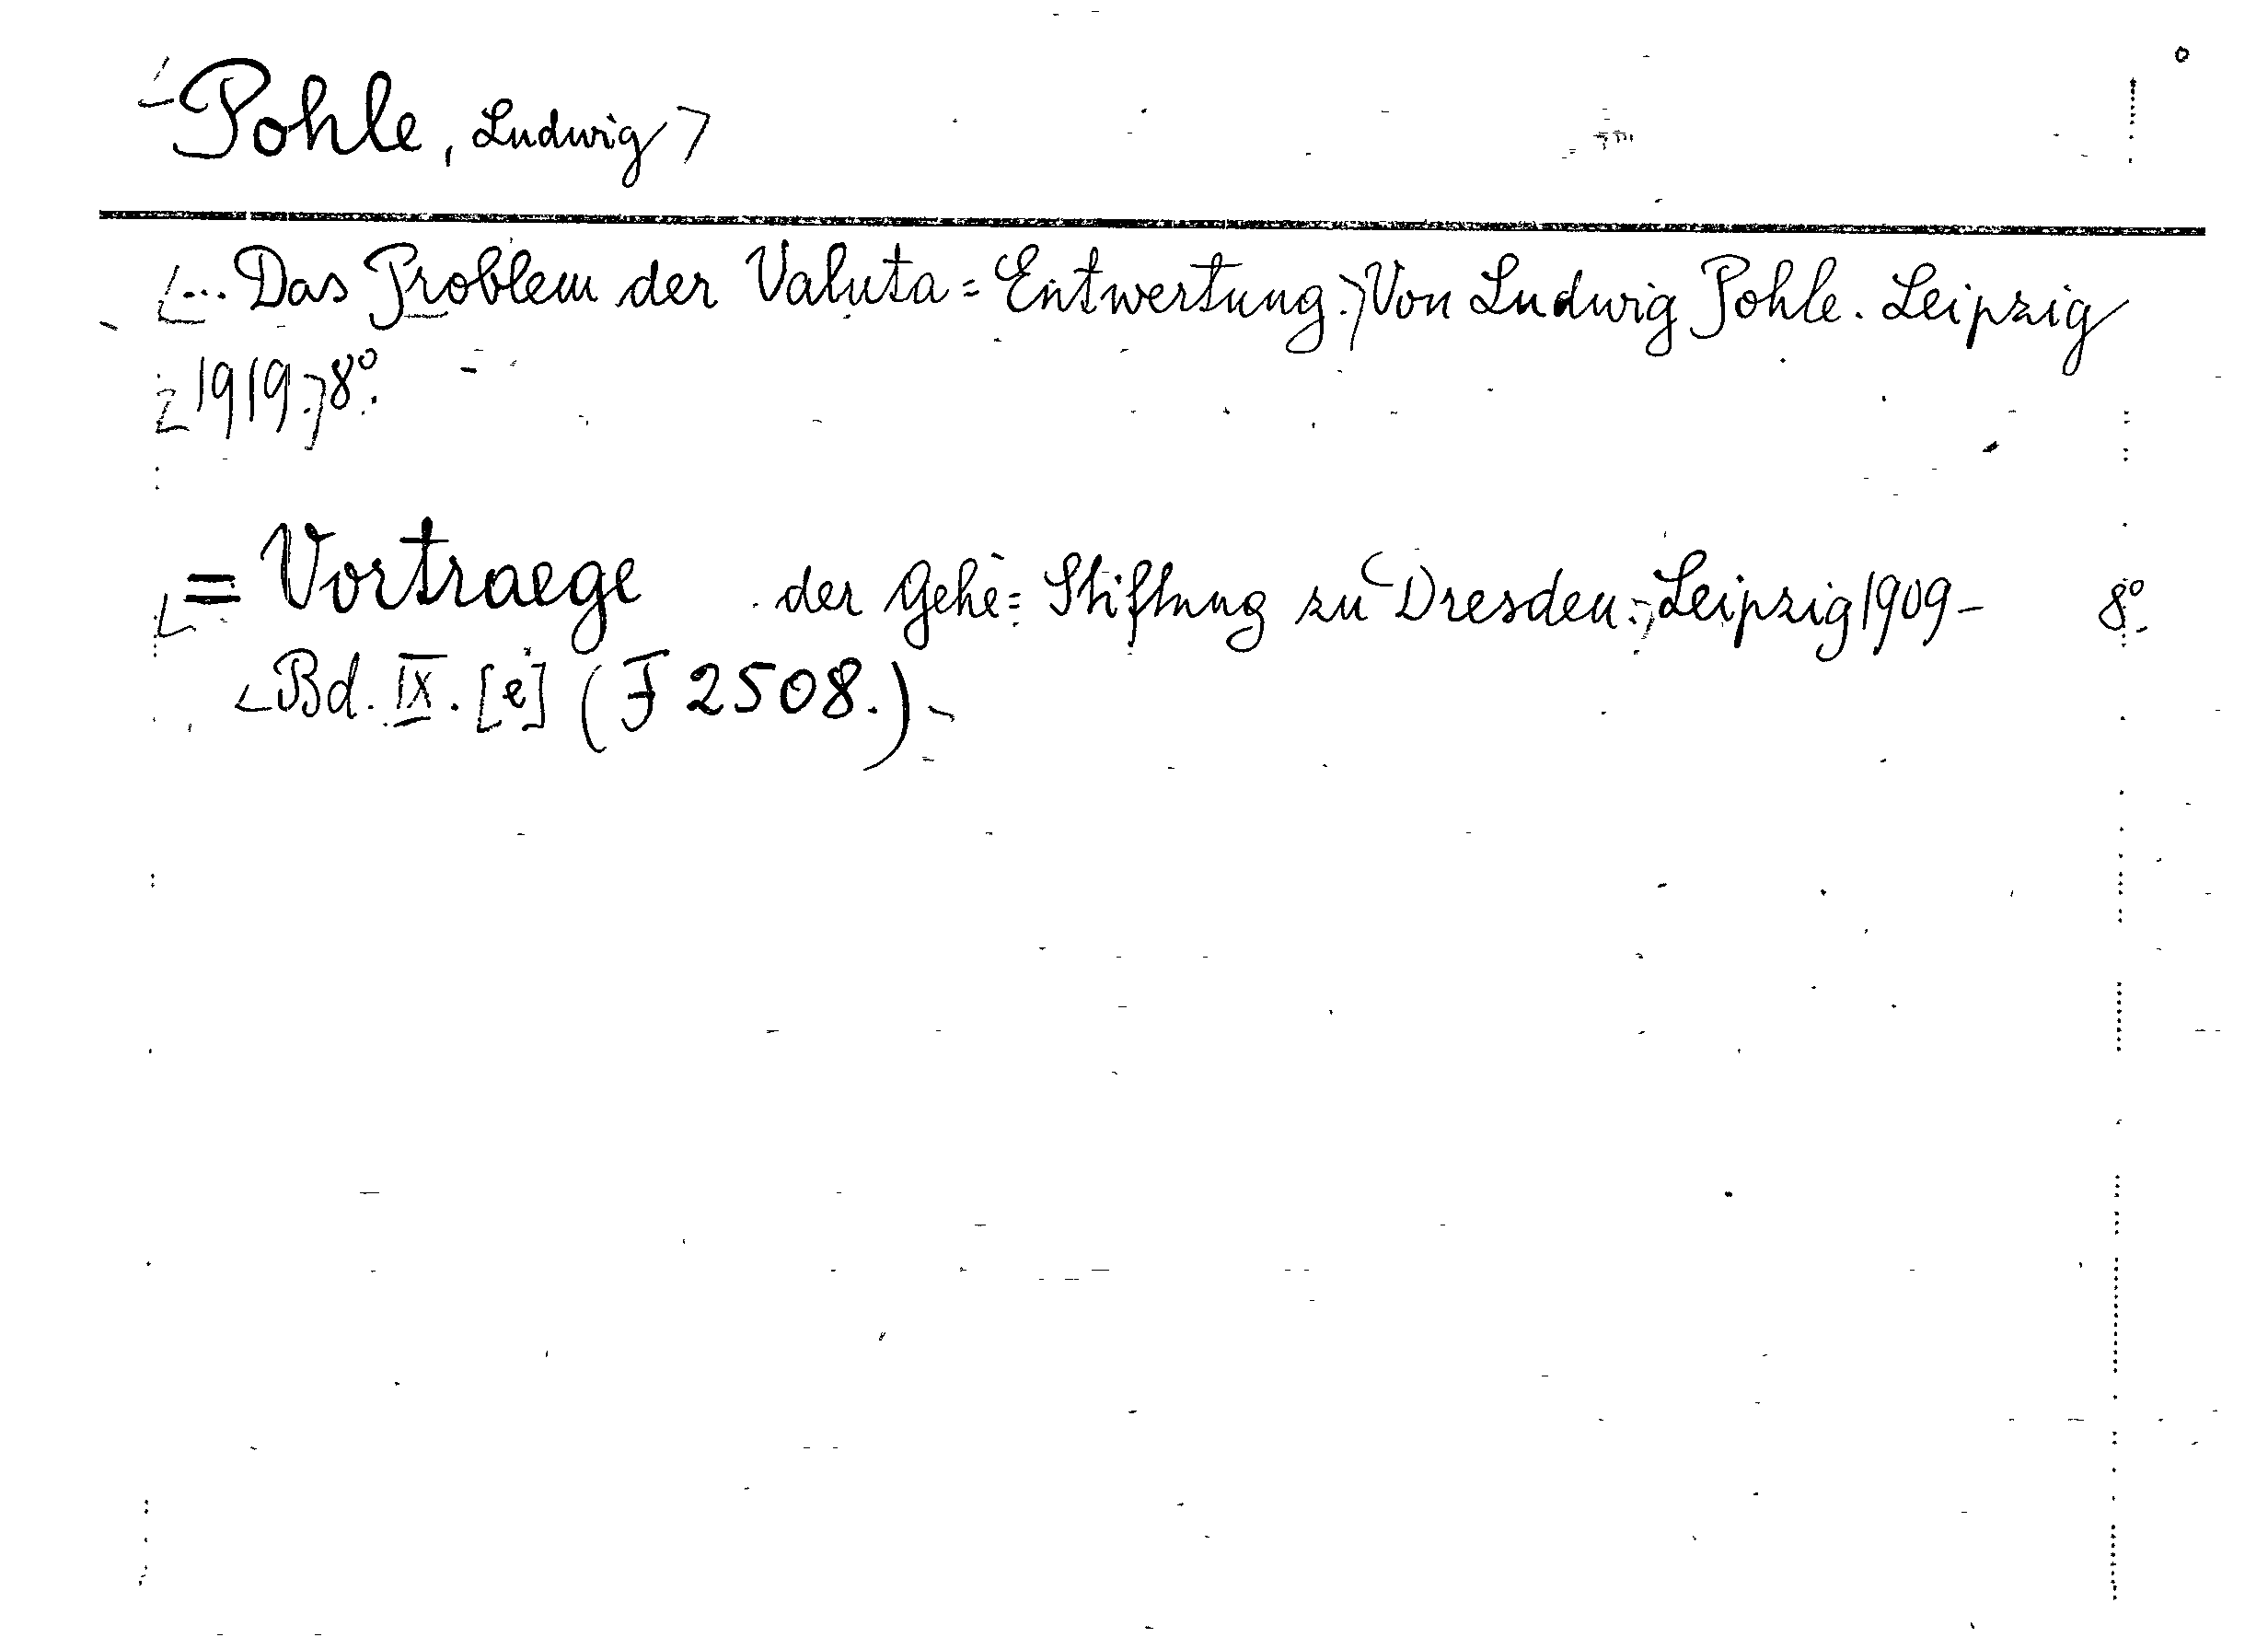 Pohle, Ludwig
... Das Problem der Valuta=Entwertung. Von Ludwig Pohle. Leipzig
1919. 8°.
= Vortraege der Gehe=Stiftung zu Dresden. Leipzig 1909– 8°.
Bd. IX. [e] (F 2508.)